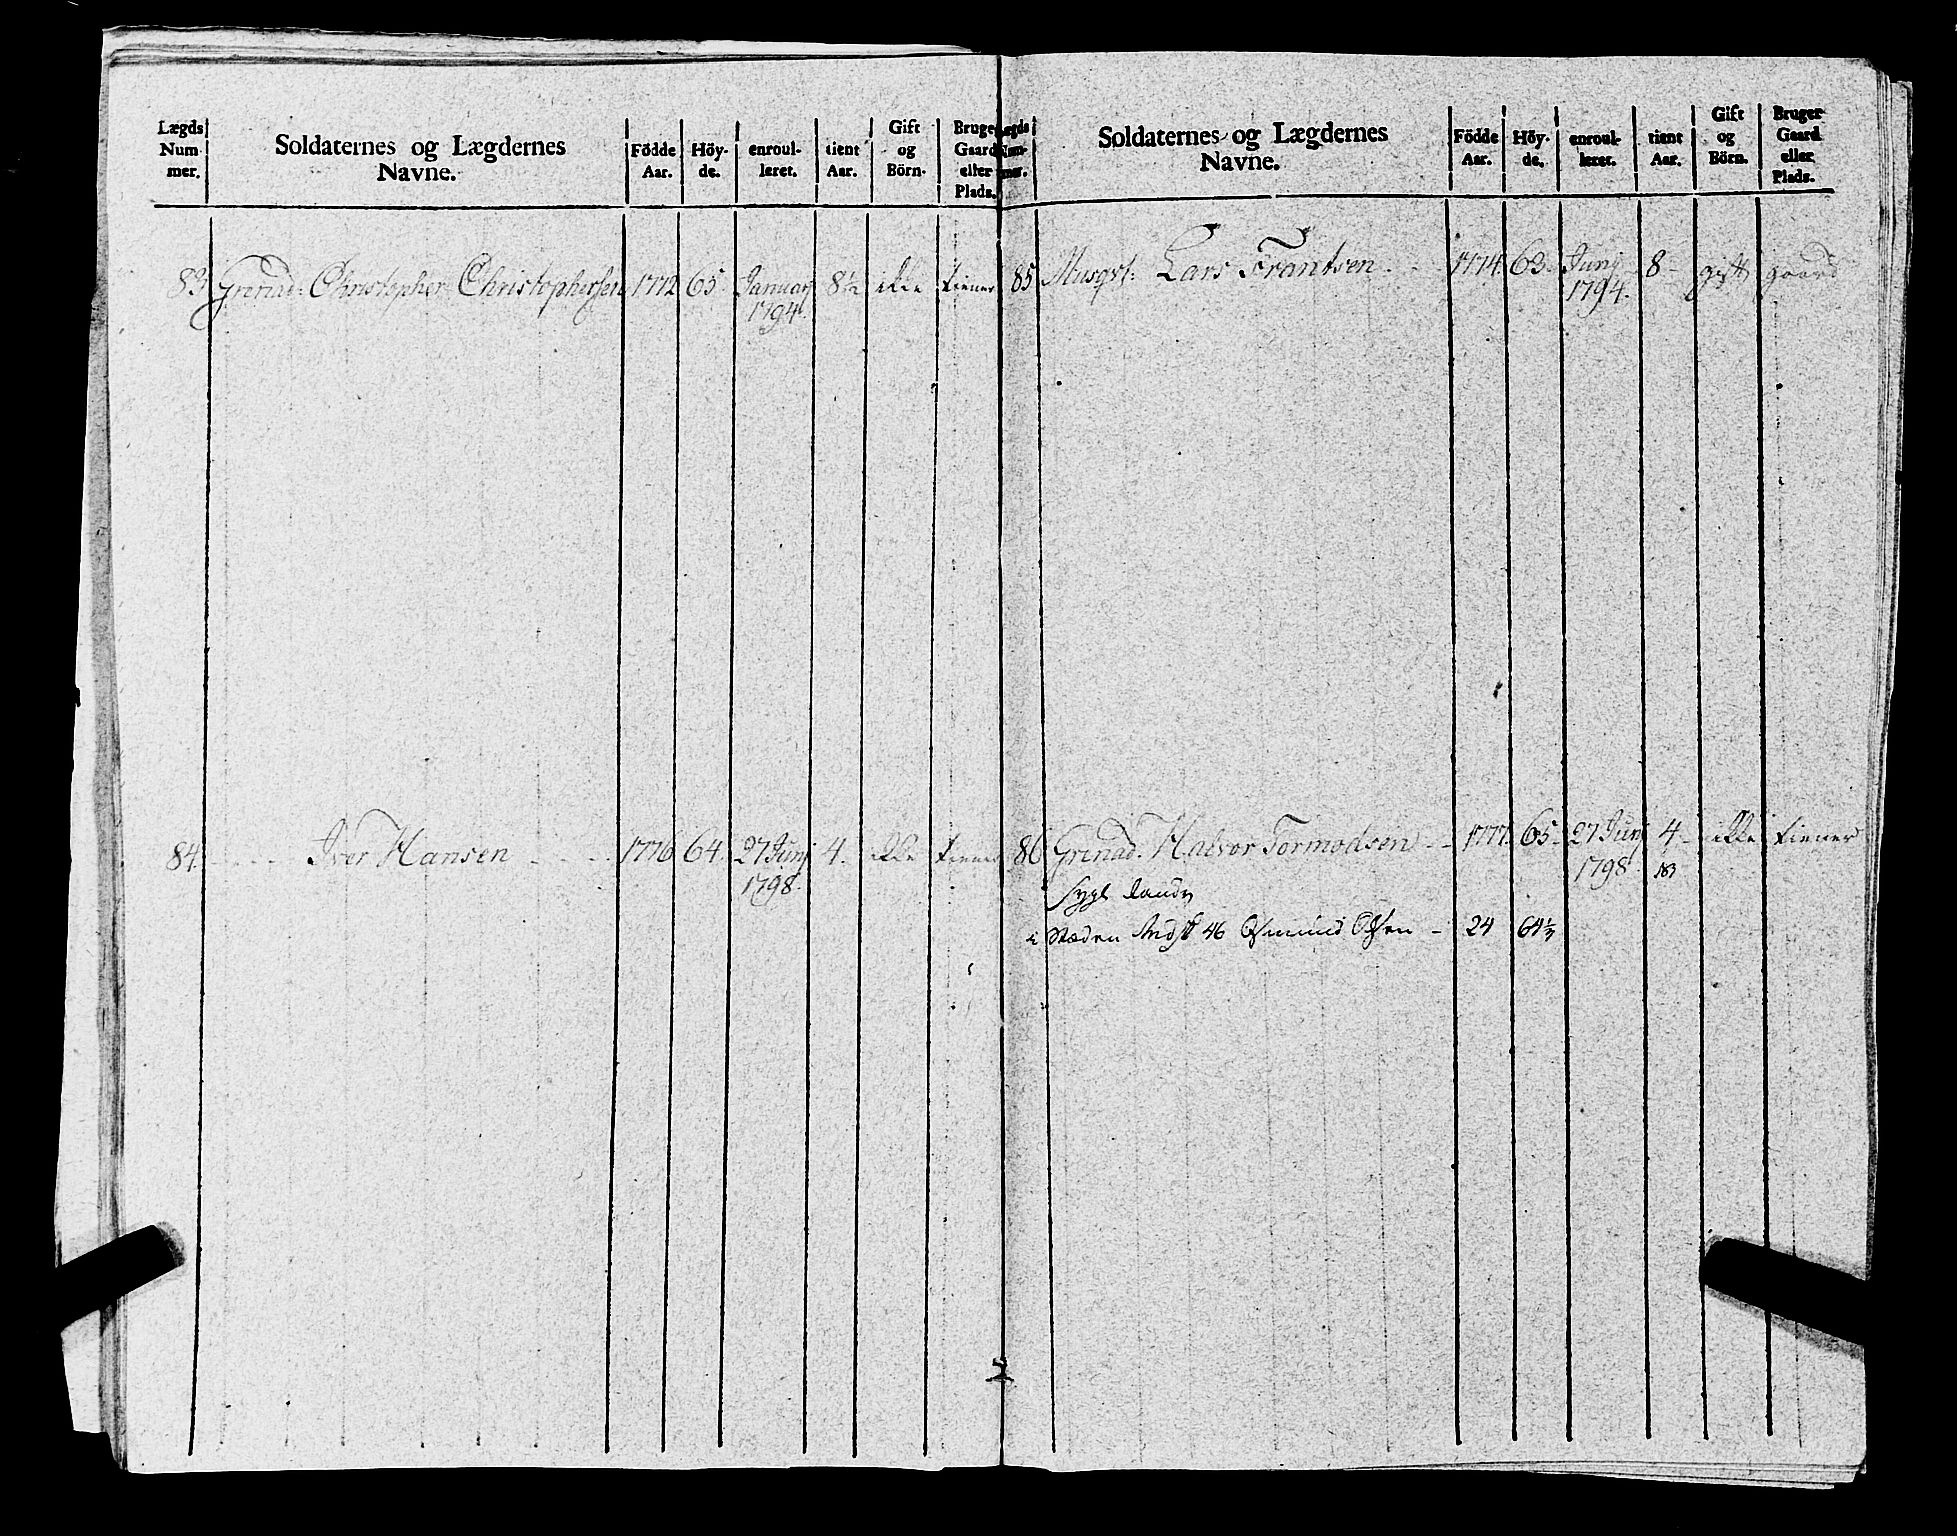 Lægds Num- mer. Soldaternes og Lægdernes Navne. Födde Aar. Höy- de. enroul- leret. tient Aar. Gift og Börn. Bruger Gaard eller Plads.
83 Grenad: Christopher Christophersen 1772 65 Januar 1794. 8½ ikke tiener
84. - - - Iver Hansen - - - - 1776 64. 27 Junj 1798. 4. ikke tiener
Lægds Num- mer. Soldaternes og Lægdernes Navne. Födde Aar. Höy- de. enroul- leret. tient Aar. Gift og Börn. Bruger Gaard eller Plads.
85 Musqt: Lars Frantsen. - - 1774. 63 - Junj 1794. 8 - gift gaard
86 Grenad. Halvor Tormodsen - - 1777. 65 - 27 Junj 1798. 4 - ikke tiener
i Stæden 46 Osmund Olsen - 24 64½